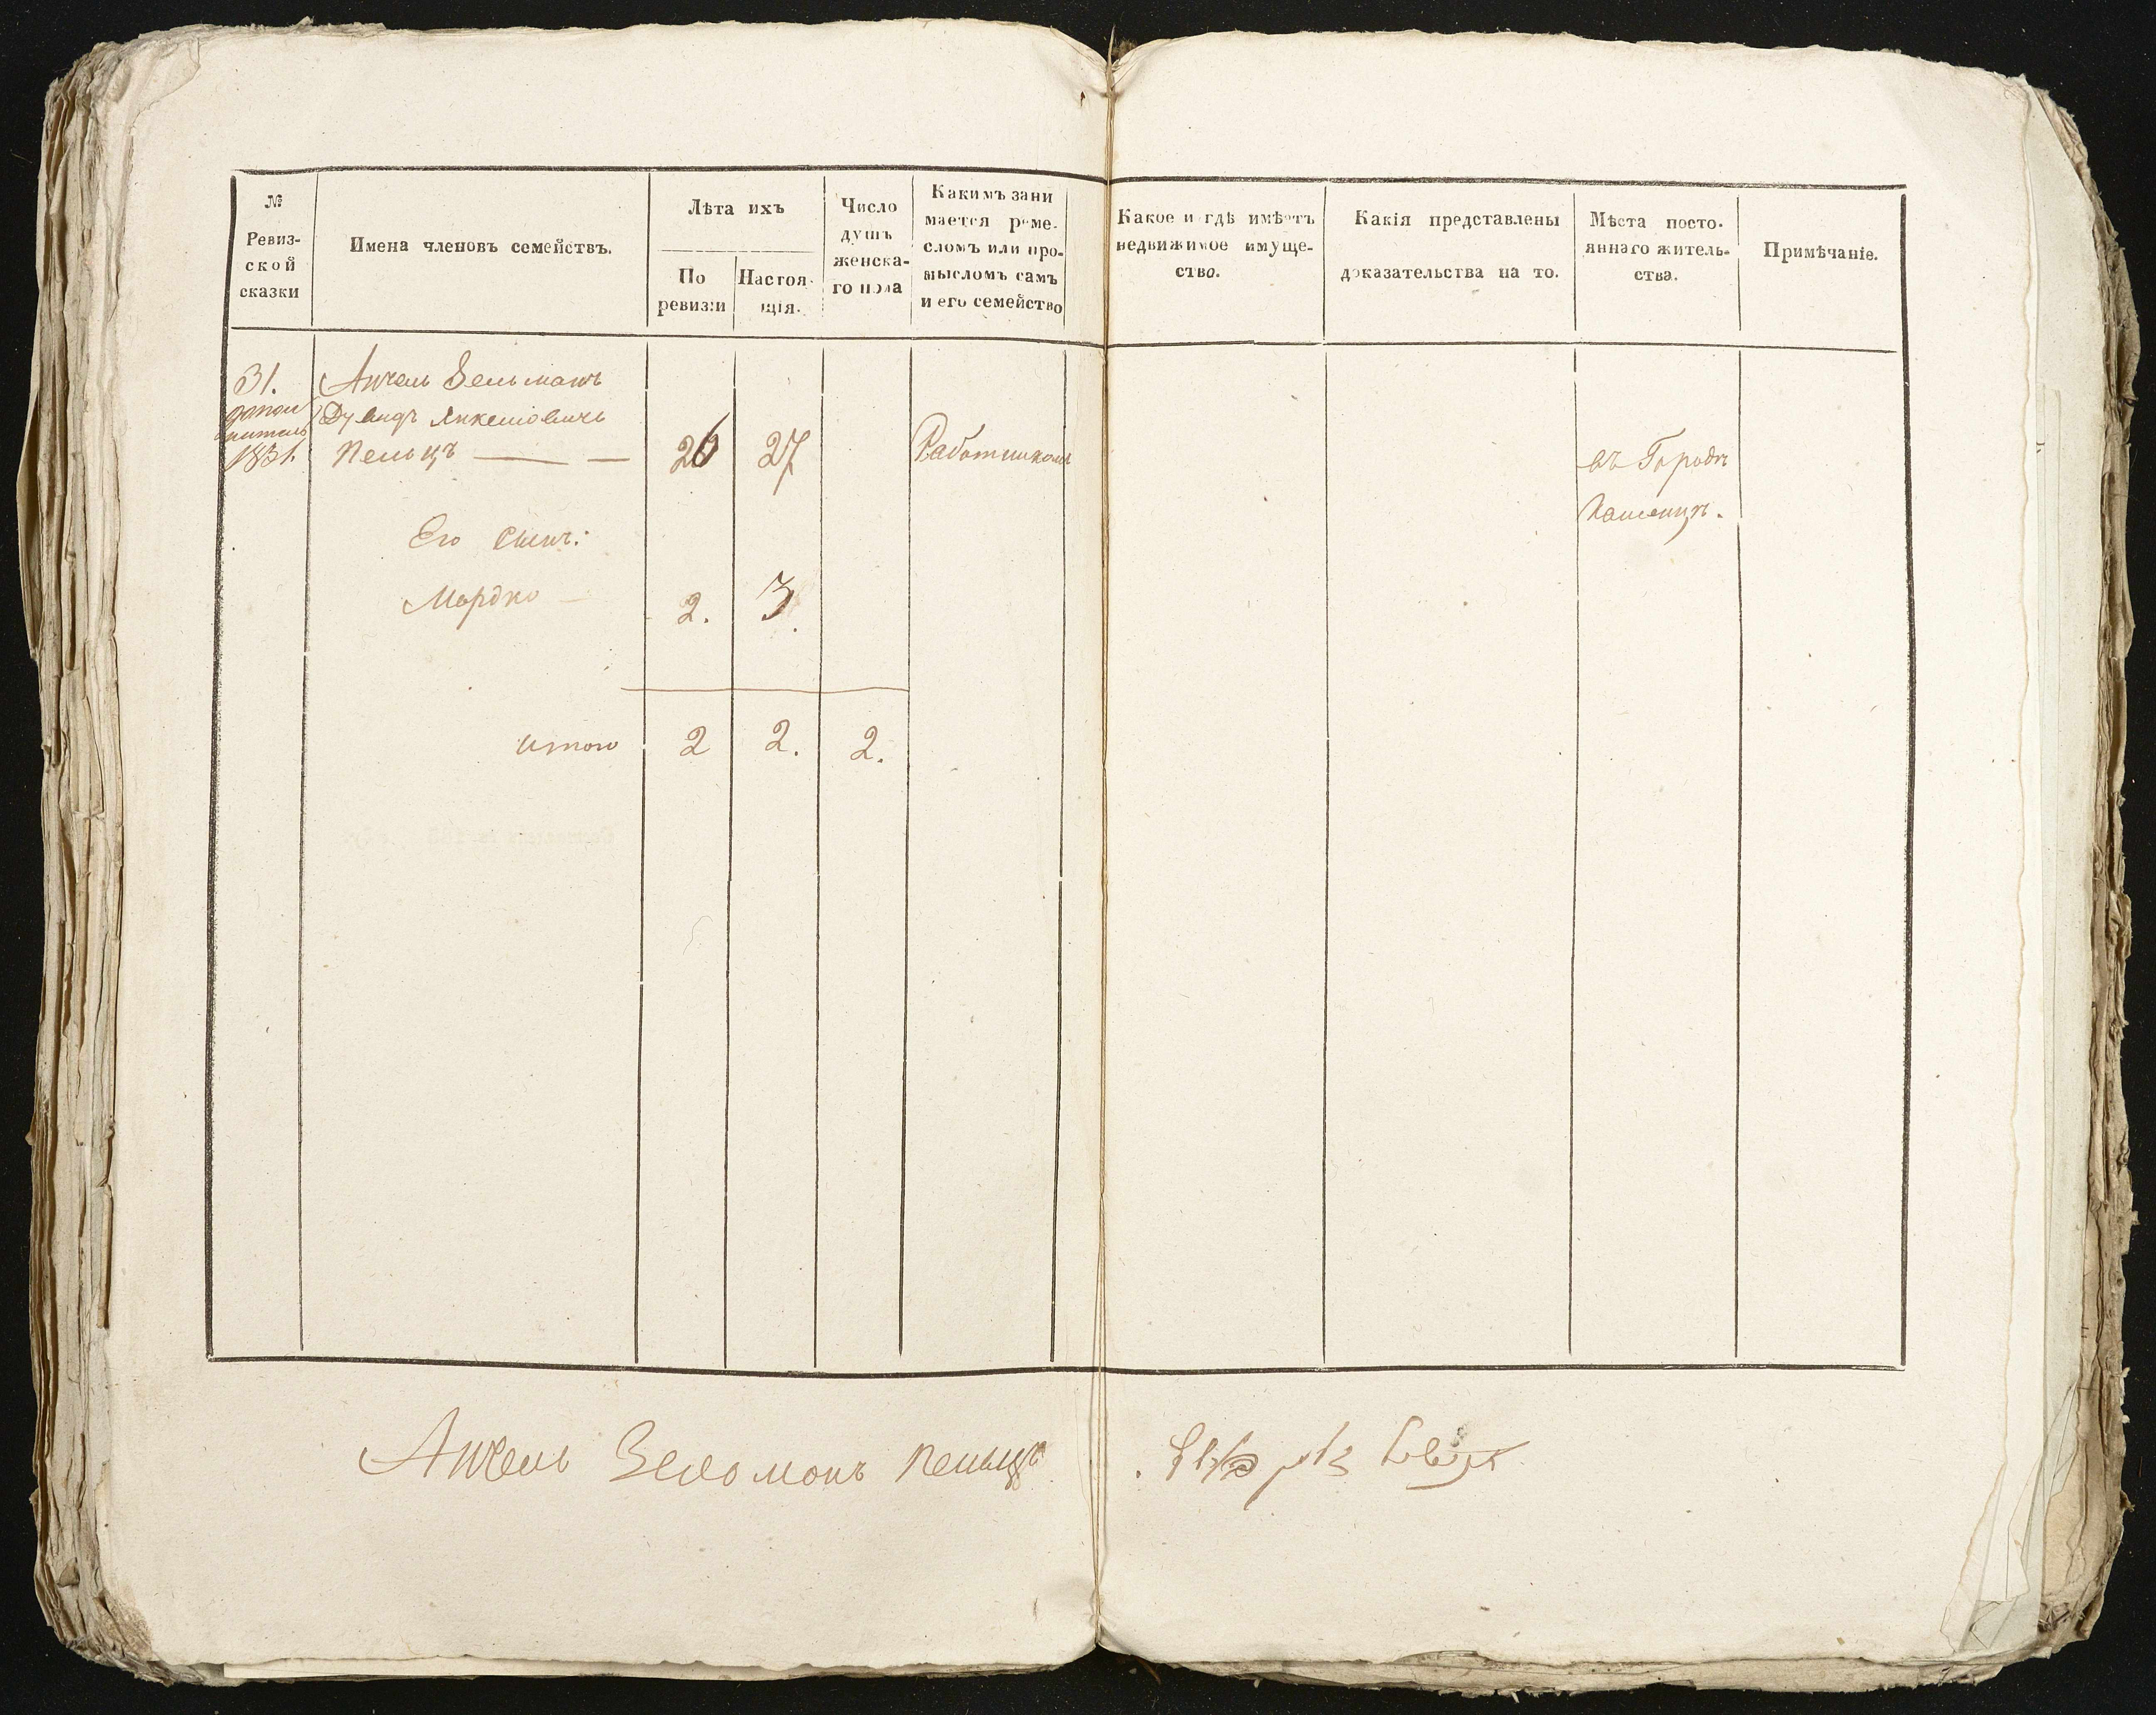 №
Ревиз-
ской
сказки
Имена членовъ семействъ.
Лѣта ихъ
По
ревизіи
Настоя-
щія.
Число
душъ
женска-
го пола
Какимъ зани
мается реме-
сломъ или про-
мысломъ самъ
и его семейство
Какое и гдѣ имѣетъ
недвижимое имуще-
ство.
Какія представлены
доказательства на то.
Мѣста посто-
яннаго житель-
ства.
Примѣчаніе.
31.
1831.
Анчель Зельманъ
Янкелiовичъ
Пельцъ 26 27 Работникомъ въ Городѣ
Каменцѣ.
Его сынъ:
Мордко 2. 3.
итого 2 2. 2.
Анчель Зеломонъ Пельцъ